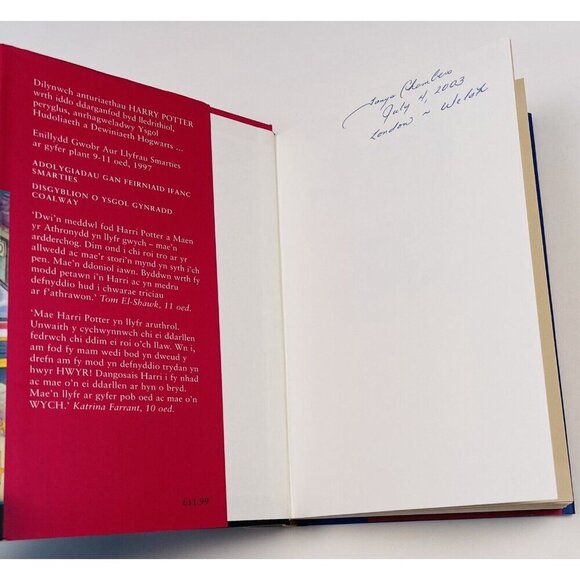 Dilynwch anturiaethau HARRY POTTER
wrth iddo ddarganfod byd lledrithiol,
peryglus, anrhagweladwy Ysgol
Hudoliaeth a Dewiniaeth Hogwarts ...
Enillydd Gwobr Aur Llyfrau Smarties
ar gyfer plant 9-11 oed, 1997
ADOLYGIADAU GAN FEIRNIAID IFANC
SMARTIES
DISGYBLION O YSGOL GYNRADD
COALWAY
'Dwi'n meddwl fod Harri Potter a Maen
yr Athronydd yn llyfr gwych – mae'n
ardderchog. Dim ond i chi roi tro ar yr
allwedd ac mae'r stori'n mynd yn syth i'ch
pen. Mae'n ddoniol iawn. Byddwn wrth fy
modd petawn i'n Harri ac yn medru
defnyddio hud i chwarae triciau
ar f'athrawon.' Tom El-Shawk, 11 oed.
'Mae Harri Potter yn llyfr aruthrol.
Unwaith y cychwynnwch chi ei ddarllen
fedrwch chi ddim ei roi o'ch llaw. Wn i,
am fod fy mam wedi bod yn dweud y
drefn am fy mod yn defnyddio trydan yn
hwyr HWYR! Dangosais Harri i fy nhad
ac mae o'n ei ddarllen ar hyn o bryd.
Mae'n llyfr ar gyfer pob oed ac mae o'n
WYCH.' Katrina Farrant, 10 oed.
£11.99
Tonya Chambers
July 4, 2003
London ~ Welsh